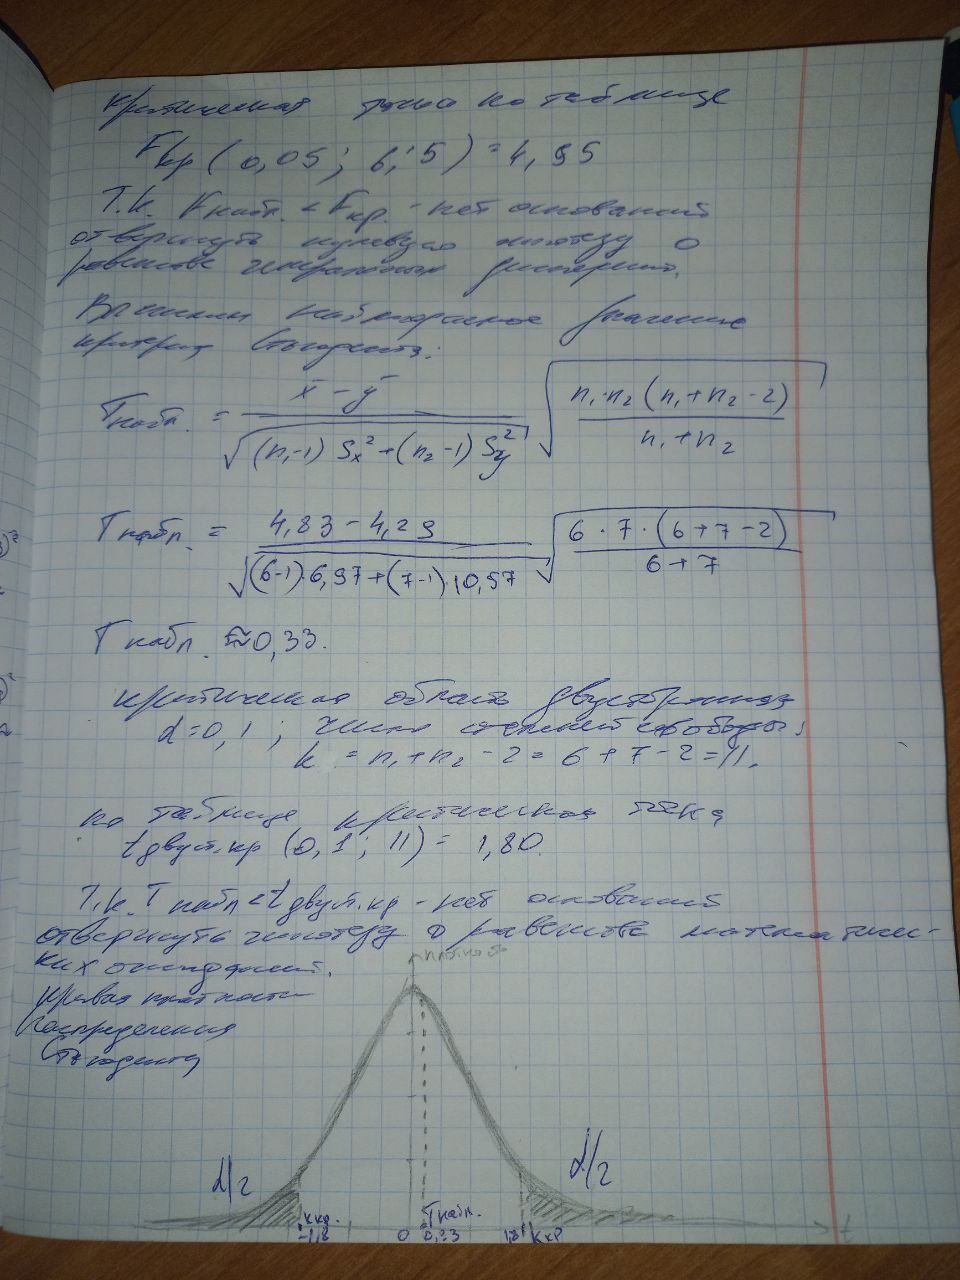 критическая точка по таблице
Fкр (0,05; 6; 5) = 4,95
Т.к. Fнабл. < Fкр. - нет оснований
отвергнуть нулевую гипотезу о
равенстве генеральных дисперсий.
Вычислим наблюдаемое значение
критерия Стьюдента:
Tнабл. = x̄ - ȳ / √((n₁-1) Sx² + (n₂-1) Sy²) √(n₁·n₂ (n₁+n₂-2) / n₁+n₂)
Tнабл. = 4,83 - 4,29 / √((6-1)·6,97+(7-1)·10,57) √(6·7·(6+7-2) / 6+7)
Tнабл. ≈ 0,33.
критическая область двусторонняя
α=0,1; число степеней свободы:
k = n₁+n₂-2 = 6+7-2 = 11.
по таблице критическая точка
tдвуст.кр (0,1; 11) = 1,80.
Т.к. Tнабл < tдвуст.кр - нет оснований
отвергнуть гипотезу о равенстве математичес-
ких ожиданий.
кривая плотности
распределения
Стьюдента
плотность
α/2
α/2
kкр.
Tнабл.
-1,8
0
0,33
1,8
kкр
t